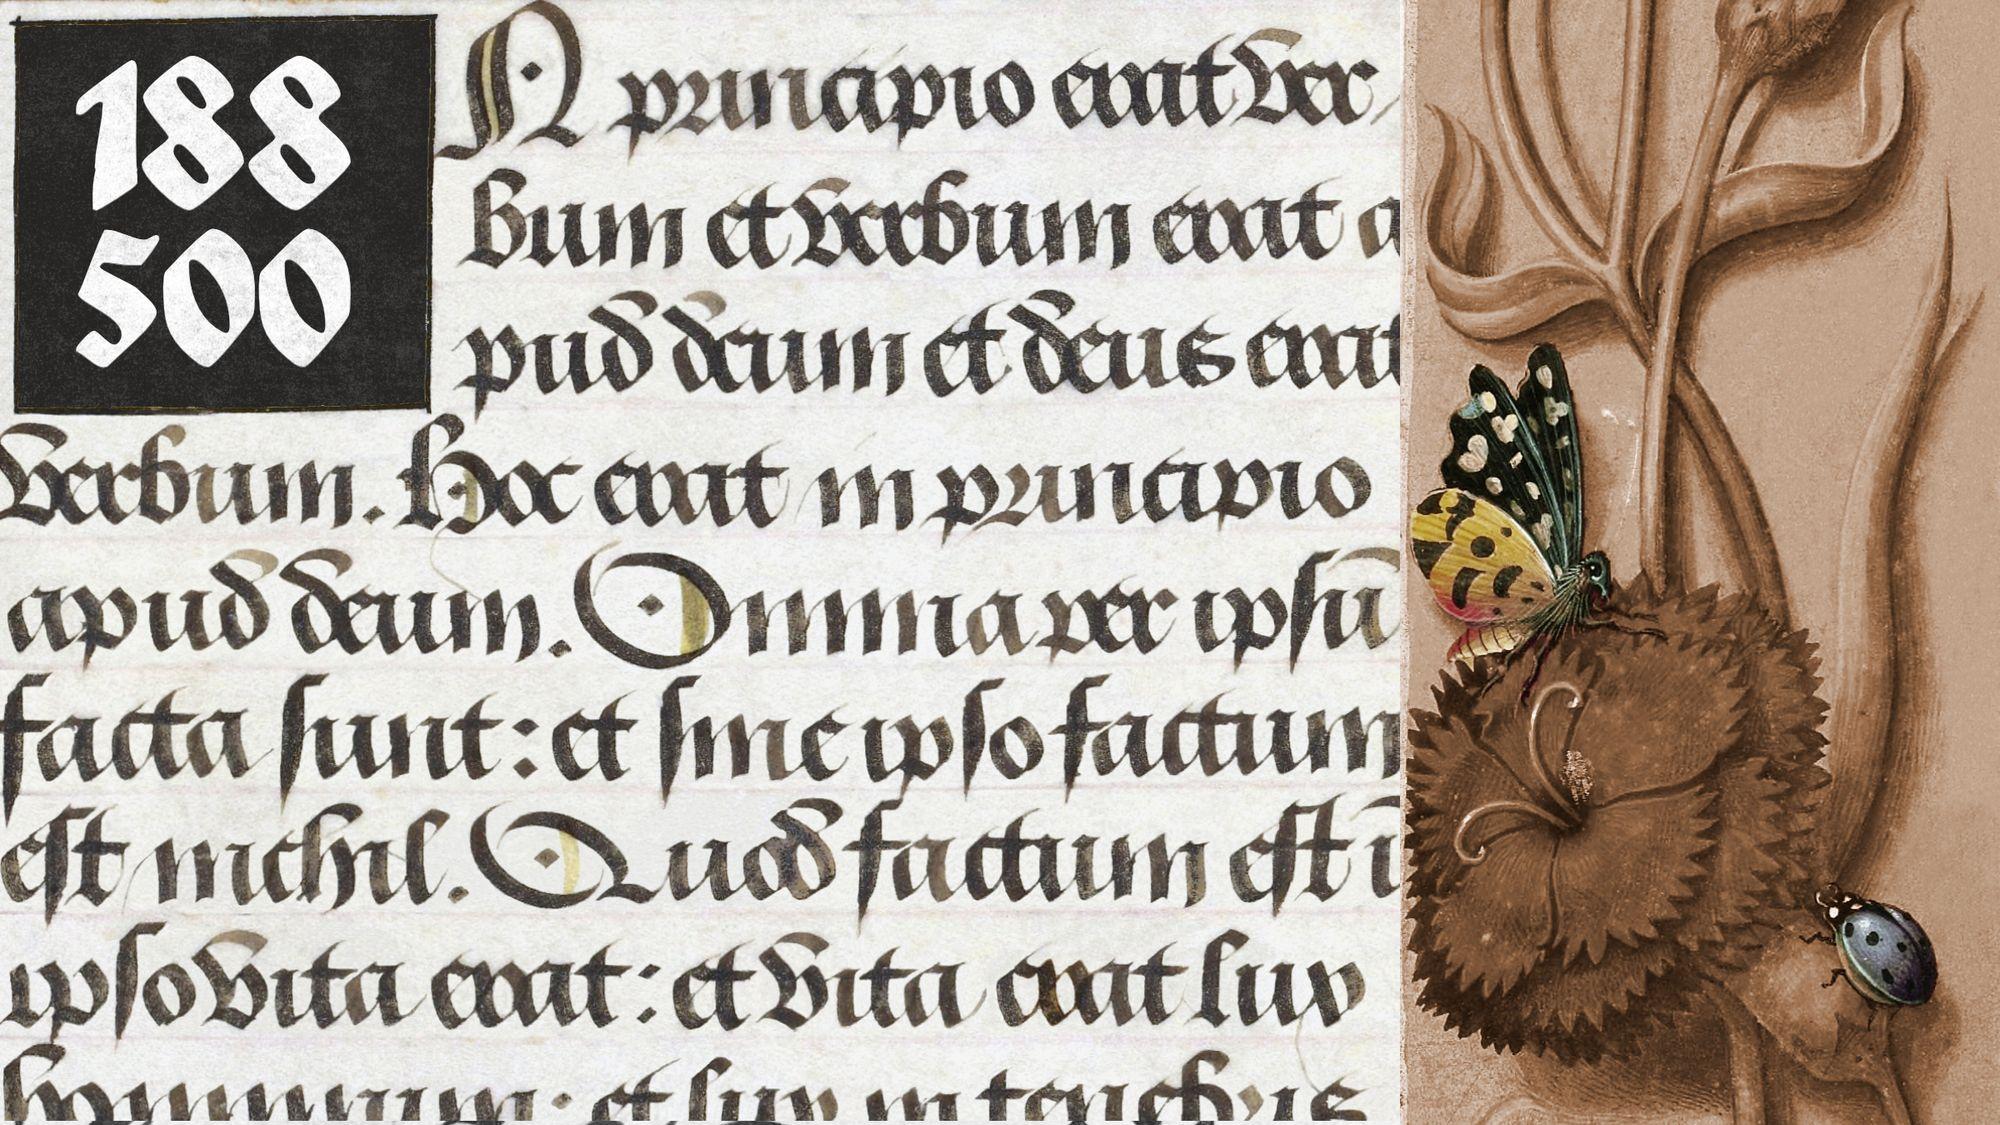 188
500
N principio erat ver
bum et verbum erat a
pud deum et deus erat
verbum. Hoc erat in principio
apud deum. Omnia per ipsū
facta sunt: et sine ipso factum
est nichil. Quod factum est ī
ipso vita erat: et vita erat lux
hominum: et lux in tenebris